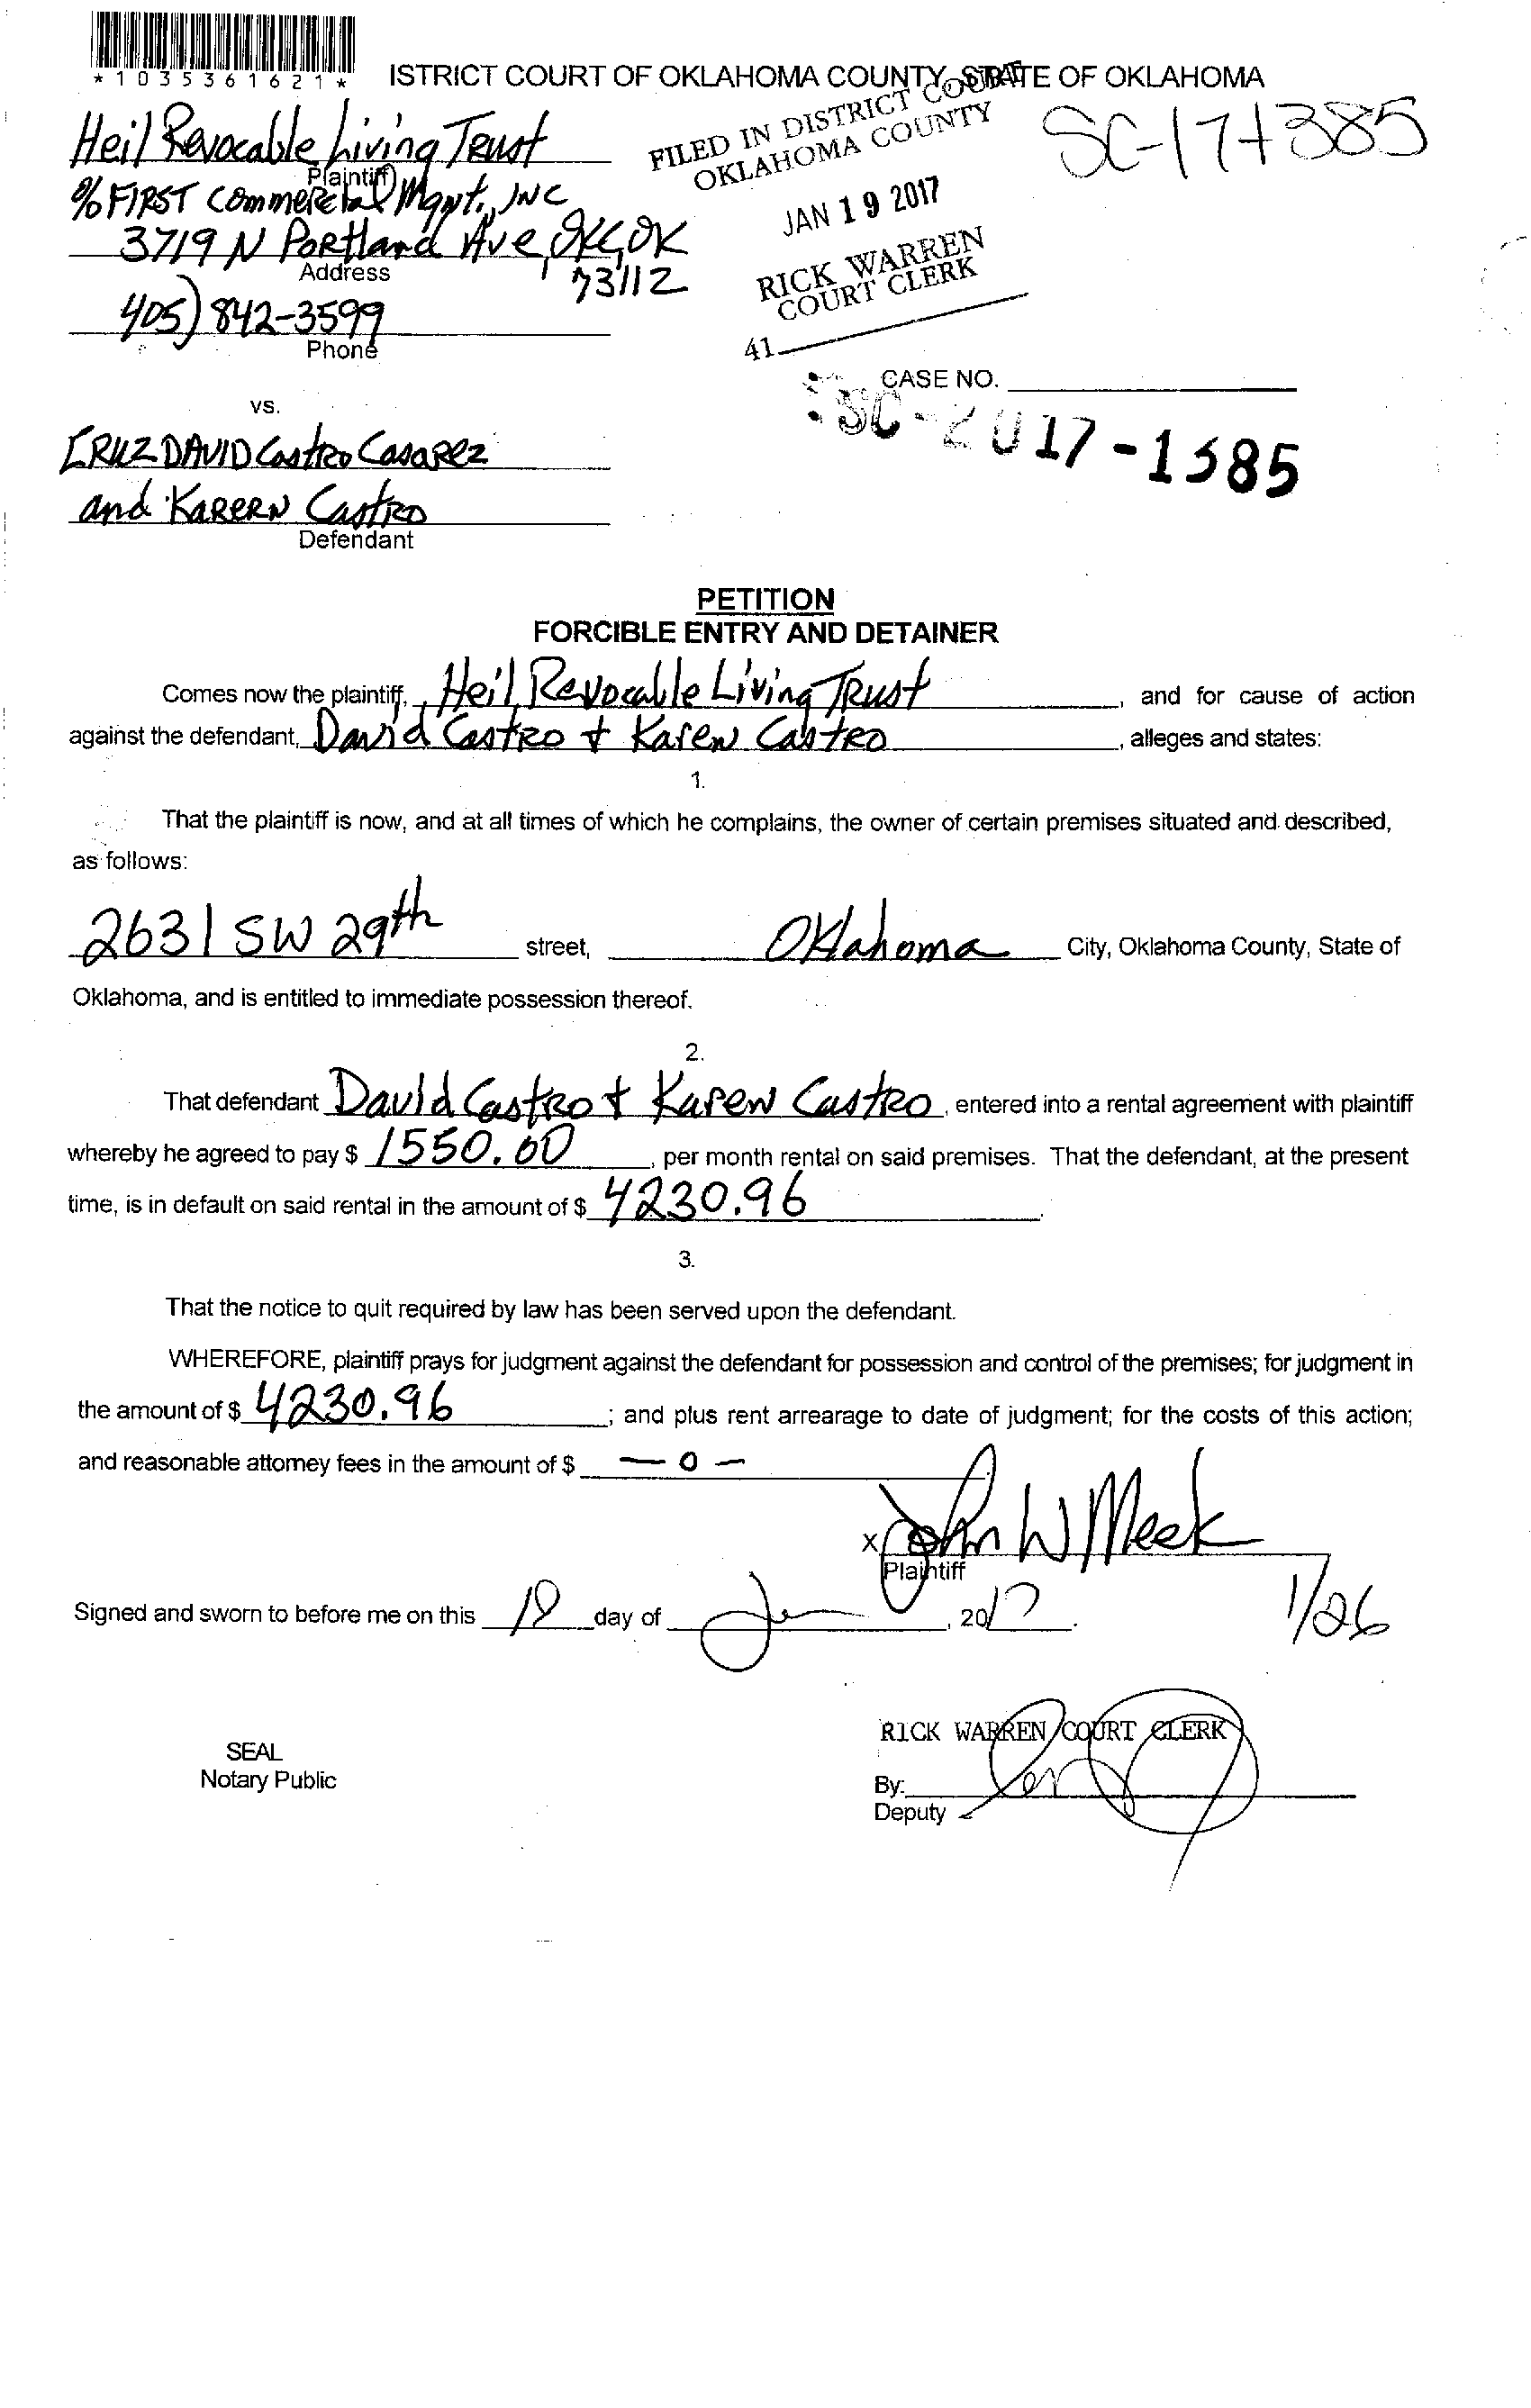 *1035361621*
ISTRICT COURT OF OKLAHOMA COUNTY, STATE OF OKLAHOMA
FILED IN DISTRICT COURT
OKLAHOMA COUNTY
JAN 19 2017
RICK WARREN
COURT CLERK
41
SC-17-1385
Heil Revocable Living Trust
Plaintiff
% FIRST Commercial Mgmt., INC
3719 N Portland Ave, OKC, OK
Address
73112
405) 842-3599
Phone
CASE NO.
SC-2017-1385
vs.
CRUZ DAVID Castro Casarez
and KareRN Castro
Defendant
PETITION
FORCIBLE ENTRY AND DETAINER
Comes now the plaintiff, Heil Revocable Living Trust, and for cause of action
against the defendant, David Castro + Karen Castro, alleges and states:
1.
That the plaintiff is now, and at all times of which he complains, the owner of certain premises situated and described,
as follows:
2631 SW 29th street, Oklahoma City, Oklahoma County, State of
Oklahoma, and is entitled to immediate possession thereof.
2.
That defendant David Castro + Karen Castro, entered into a rental agreement with plaintiff
whereby he agreed to pay $ 1550.00, per month rental on said premises. That the defendant, at the present
time, is in default on said rental in the amount of $ 4230.96.
3.
That the notice to quit required by law has been served upon the defendant.
WHEREFORE, plaintiff prays for judgment against the defendant for possession and control of the premises; for judgment in
the amount of $ 4230.96; and plus rent arrearage to date of judgment; for the costs of this action;
and reasonable attorney fees in the amount of $ — 0 —.
x John W Meek
Plaintiff
Signed and sworn to before me on this 19 day of Jan, 2017.
1/26
SEAL
Notary Public
RICK WARREN COURT CLERK
By:
Deputy